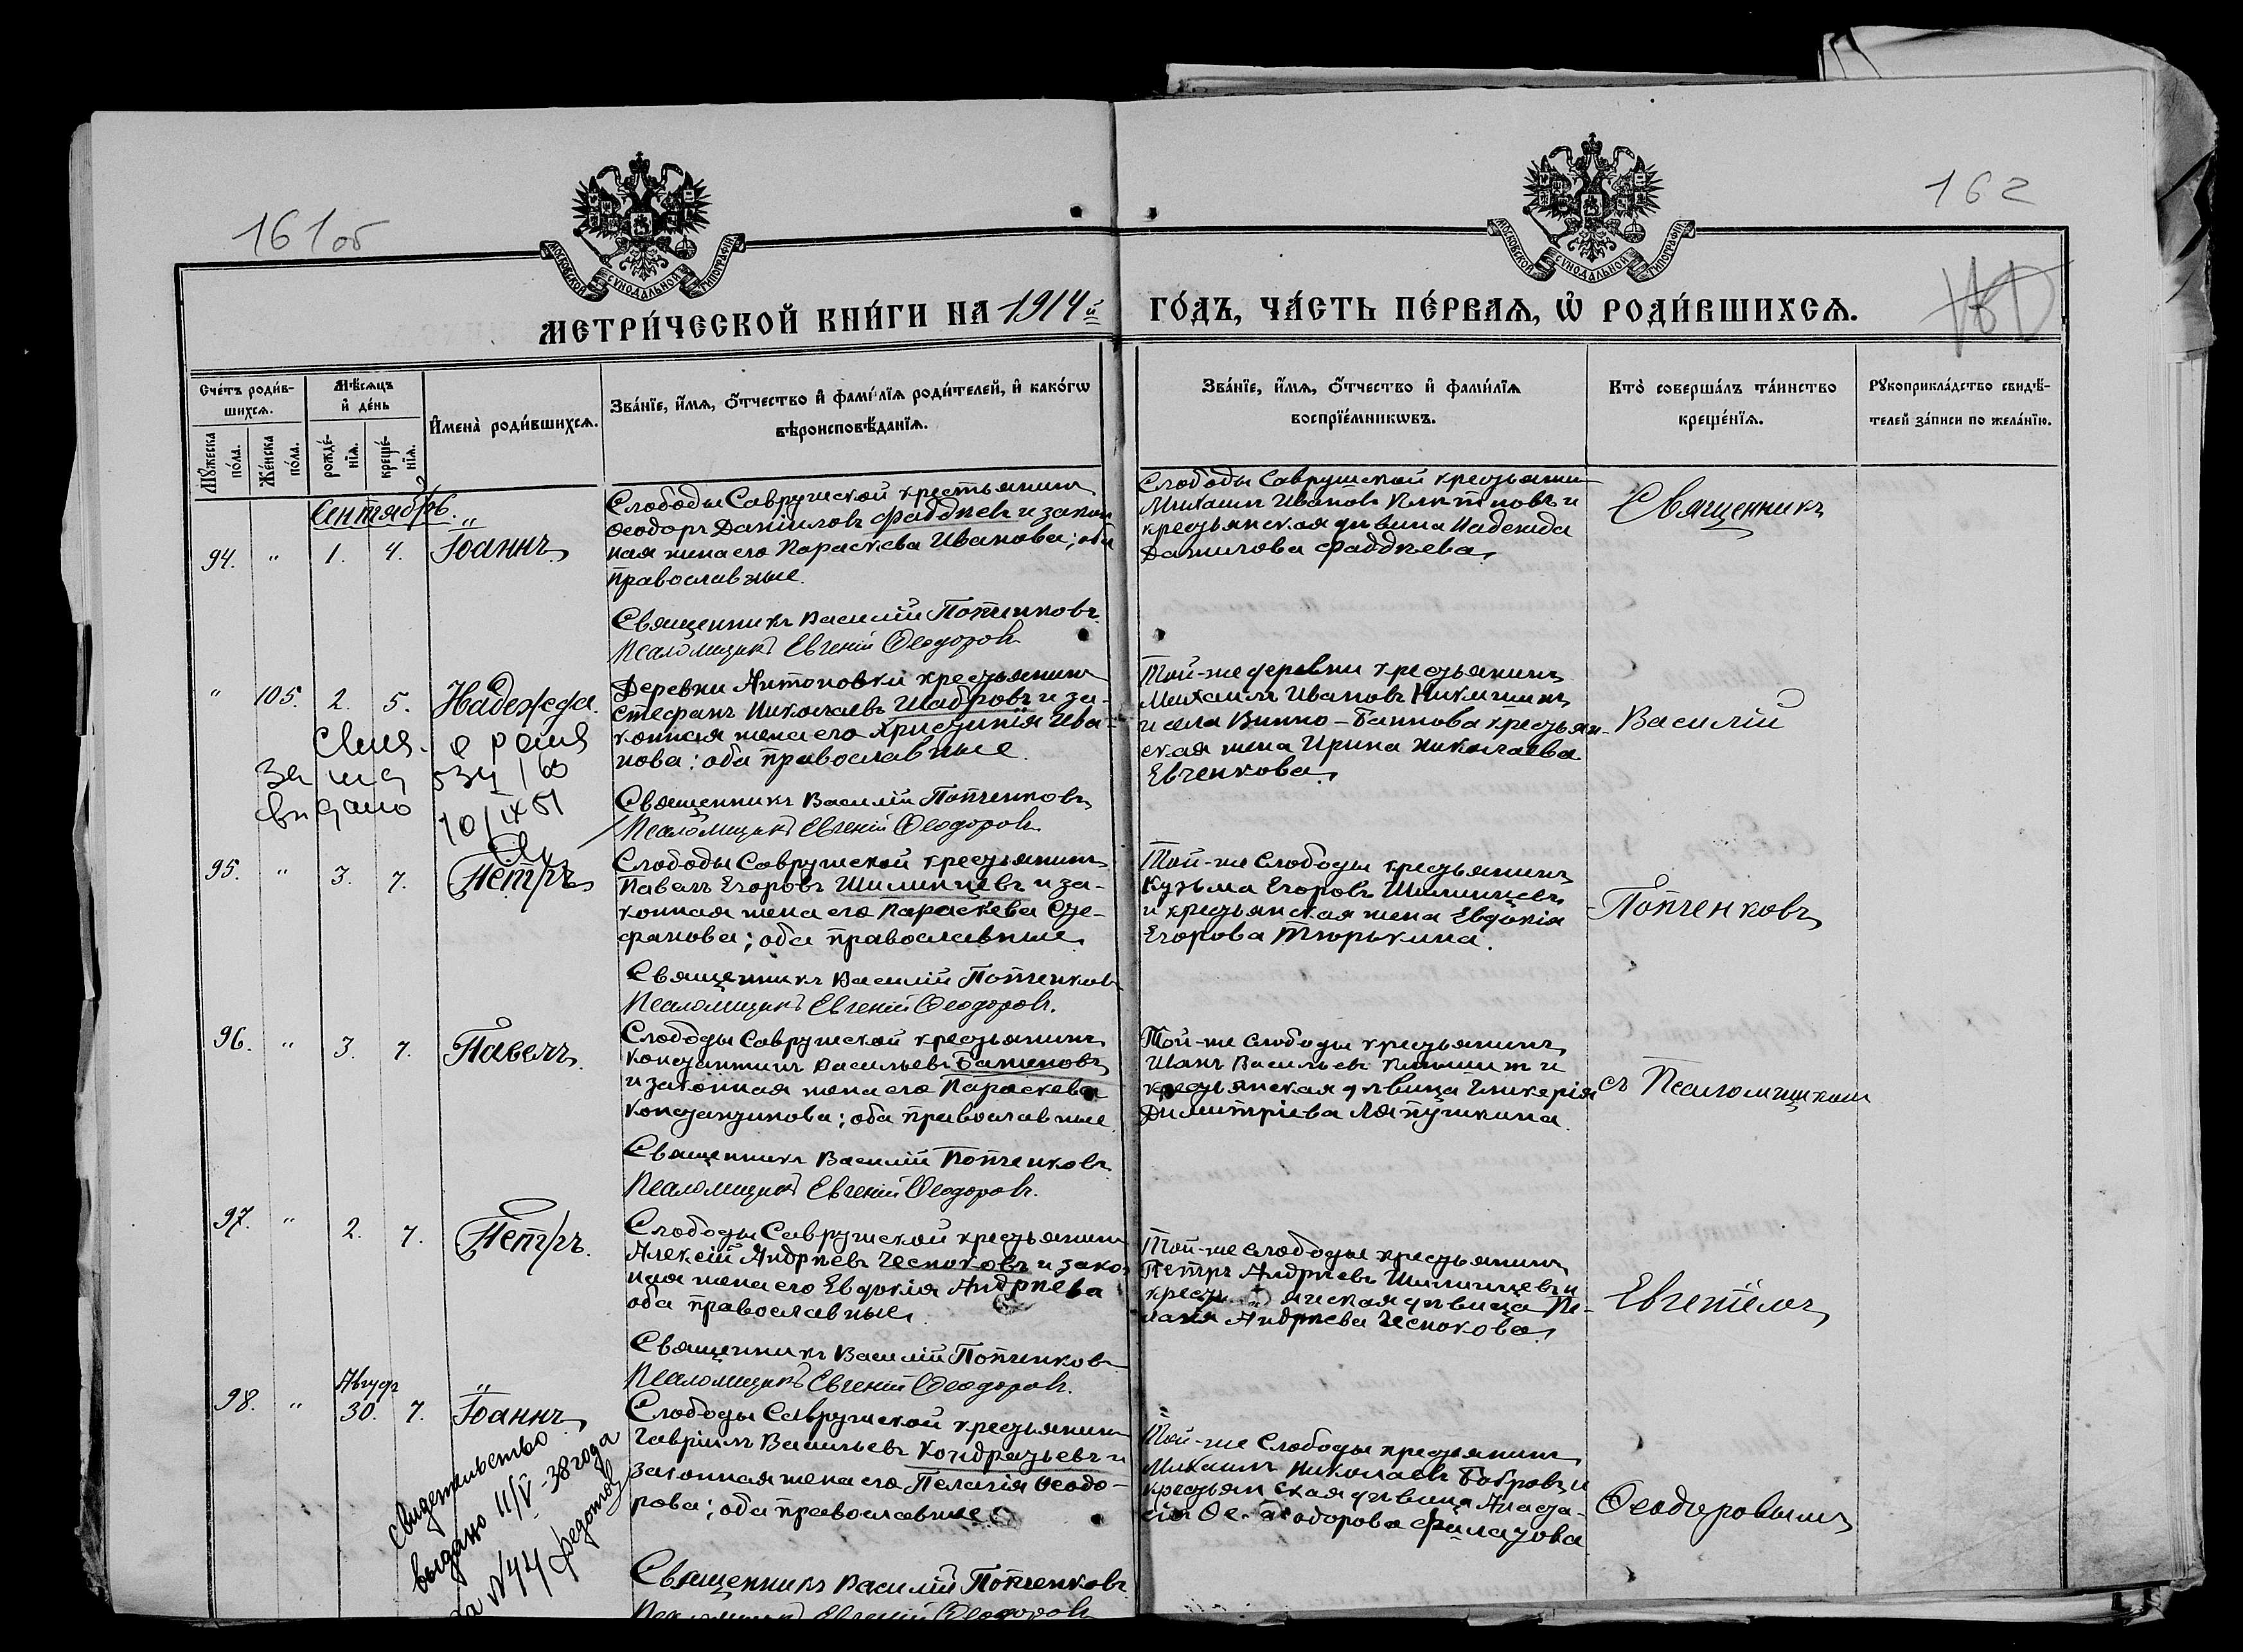 161об
162
МОСКОВСКОЙ СѴНОДАЛЬНОЙ ТИПОГРАФІИ
МОСКОВСКОЙ СѴНОДАЛЬНОЙ ТИПОГРАФІИ
МЕТРИ́ЧЕСКОЙ КНИ́ГИ НА 1914й ГО́ДЪ, ЧА́СТЬ ПЕ́РВАѦ, Ѡ҆ РОДИ́ВШИХСѦ.
Сче́тъ роди́в-
шихсѧ.
Мꙋ́жеска по́ла.
Же́нска по́ла.
Мѣ́сѧцъ
и҆ де́нь
рожде́-
нїѧ.
креще́-
нїѧ.
И҆мена̀ роди́вшихсѧ.
Зва́нїе, и҆́мѧ, ѻ҆́тчество и҆ фами́лїѧ роди́телей, и҆ како́гѡ
вѣроисповѣ́данїѧ.
Зва́нїе, и҆́мѧ, ѻ҆́тчество и҆ фами́лїѧ
воспрїе́мникѡвъ.
Кто̀ соверша́лъ та́инство
креще́нїѧ.
Рꙋкоприкла́дство свидѣ́-
телей за́писи по жела́нїю.
Сентябрь.
94. " 1. 4. Іоаннъ
Слободы Саврушской крестьянинъ
Ѳеодоръ Даніиловъ Фаддѣевъ и закон
ная жена его Параскева Иванова; оба
православные.
Священникъ Василій Попченковъ
Псаломщикъ Евгеній Ѳеодоровъ
Слободы Саврушской крестьянин
Михаилъ Ивановъ и
крестьянская дѣвица Надежда
Данилова Фаддѣева
Священникъ
" 105. 2. 5. Надежда.
Деревни Антоновки крестьянинъ
Стефанъ Николаевъ Шабровъ и за-
конная жена его Христинія Ива-
нова: оба православные.
Священникъ Василій Попченковъ
Псаломщикъ Евгеній Ѳеодоровъ
Той-же деревни крестьянинъ
Михаилъ Ивановъ Никишинъ
и села Винно-Баннова крестьян-
ская жена Ирина Николаева
Евченкова
Василій
за
10/IX 51
95. " 3. 7. Петръ
Слободы Саврушской крестьянинъ
Павелъ Егоровъ Шишинцевъ и за-
конная жена его Параскева Сте-
фанова; оба православные
Священникъ Василій Попченковъ
Псаломщикъ Евгеній Ѳеодоровъ.
Той-же Слободы крестьянинъ
Кузьма Егоровъ Шишинцевъ
и крестьянская жена Евдокія
Егорова Тюрькина.
Попченковъ
96. " 3. 7. Павелъ
Слободы Саврушской крестьянинъ
Константинъ Васильевъ Баженовъ
и законная жена его Параскева
Константинова; оба православные
Священникъ Василій Попченковъ
Псаломщикъ Евгеній Ѳеодоровъ.
Той-же слободы крестьянинъ
Иванъ Васильевъ и
крестьянская дѣвица Гликерія
Димитріева Ляпушкина.
съ Псаломщикомъ
97. " 2. 7. Петръ.
Слободы Саврушской крестьянинъ
Алексій Андреевъ Чесноковъ и закон
ная жена его Евдокія Андреева
оба православные.
Священникъ Василій Попченковъ
Псаломщикъ Евгеній Ѳеодоровъ.
Той-же слободы крестьянинъ
Петръ Андреевъ Шишинцевъ и
крестьянская дѣвица Пе-
лагія Андреева Чеснокова
Евгеніемъ
Август
98. " 30. 7. Іоаннъ
Слободы Саврушской крестьянинъ
Гавріилъ Васильевъ Кондратьевъ и
законная жена его Пелагія Ѳеодо-
рова; оба православные
Священникъ Василій Попченковъ
Псаломщикъ Евгеній Ѳеодоровъ
Той-же Слободы крестьянинъ
Михаилъ Николаевъ Бобровъ и
крестьянская дѣвица Анаста-
сія Ѳеодорова Филатова
Ѳеодоровымъ
Свидетельство
выдано 11/V-38 года
за N 44 Федотов